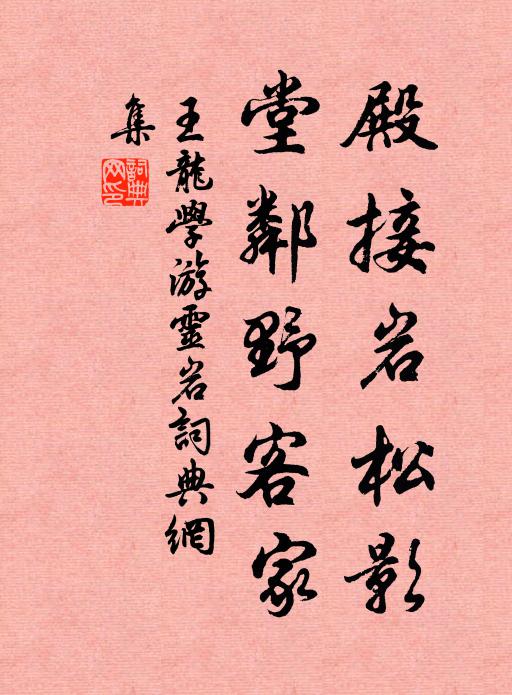 殿接岩松影
堂鄰野客家
王龍學游靈岩詞典網
集
詞典网印